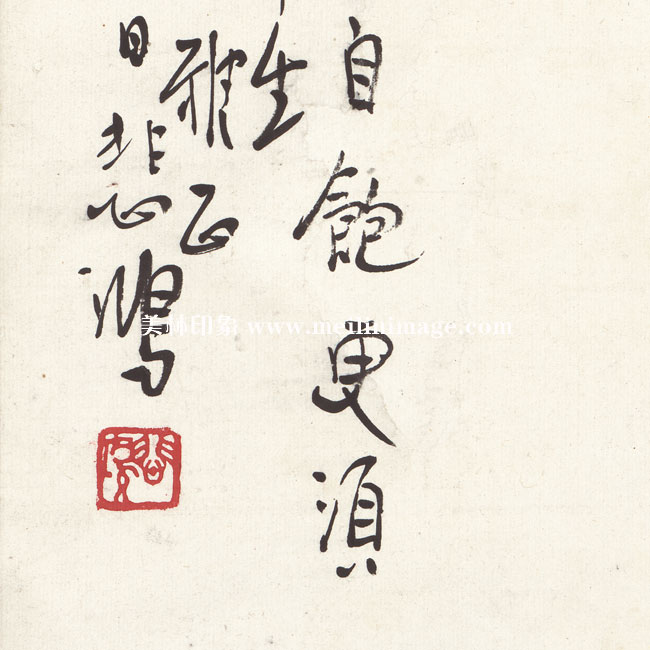 自飽更須
生
雅正
日悲鴻
美林印象 www.meilinimage.com